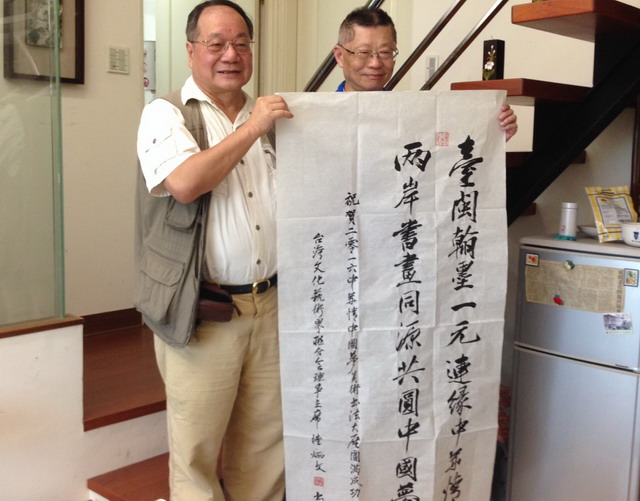 臺閩翰墨一元連緣中華
兩岸書畫同源共圓中國夢
祝賀二零一六中華情中國夢美術書法大展圓滿成功
台灣文化藝術界聯合會
主席
炳文